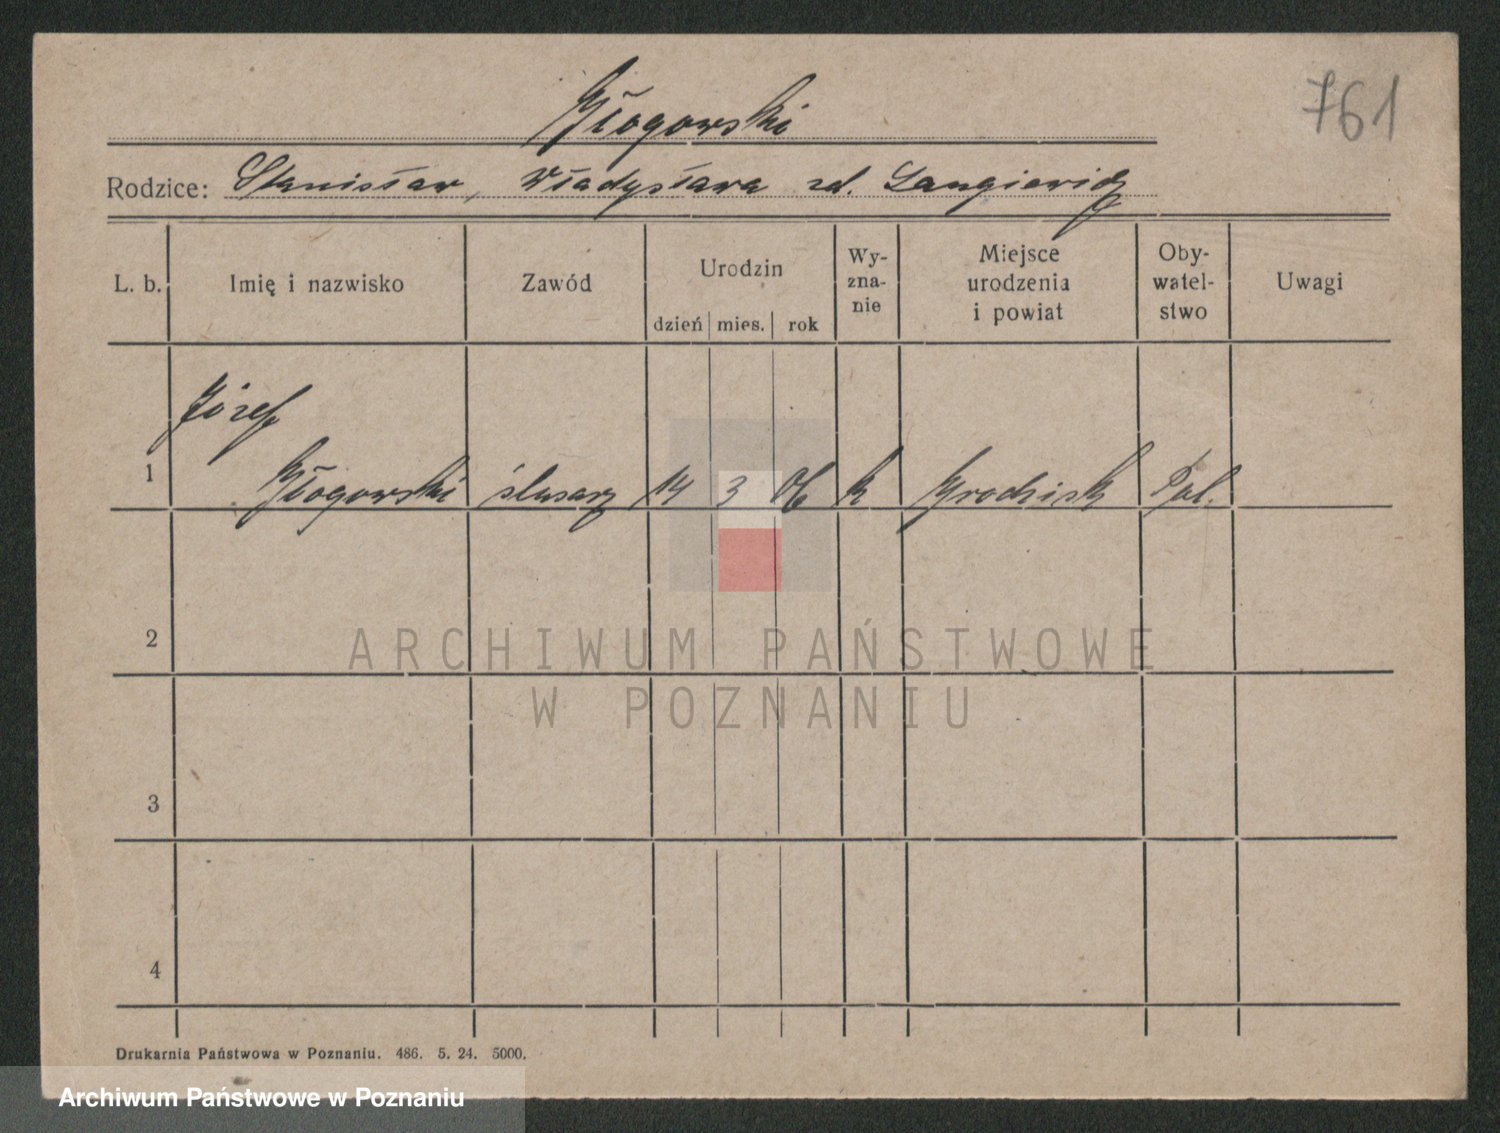 761
Głogowski
Rodzice: Stanisław, Władysława zd. Langiewicz
L. b. Imię i nazwisko Zawód Urodzin dzień mies. rok Wy-zna-nie Miejsce urodzenia i powiat Oby-watel-stwo Uwagi
Józef
1 Głogowski ślusarz 14 3 06 k Grodzisk Pol.
2
ARCHIWUM PAŃSTWOWE
W POZNANIU
3
4
Drukarnia Państwowa w Poznaniu. 486. 5. 24. 5000.
Archiwum Państwowe w Poznaniu